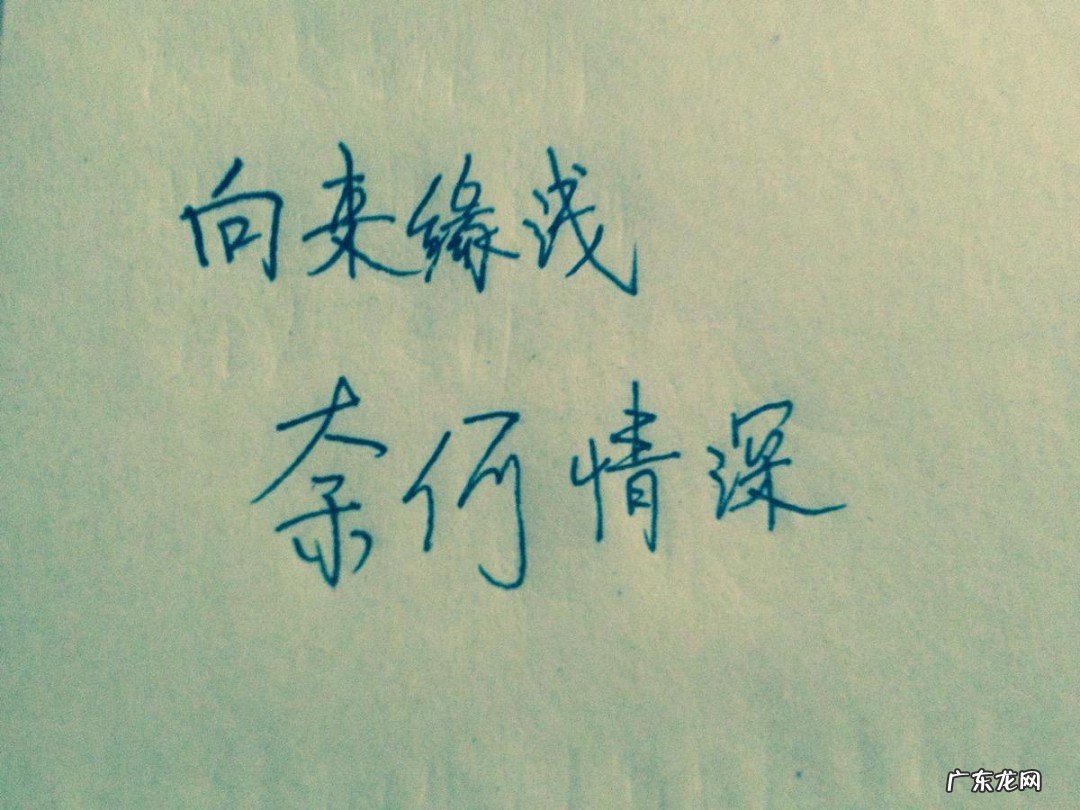 向来缘浅
奈何情深
广东龙网